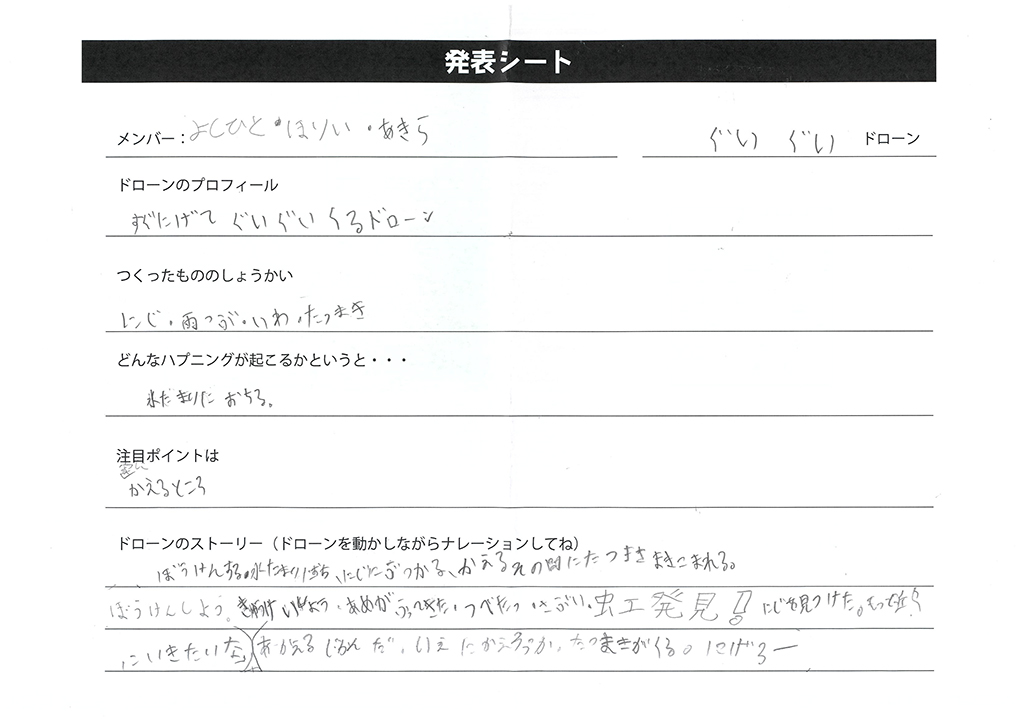 発表シート
メンバー：よしひと・ほりい・あきら ぐい ぐい ドローン
ドローンのプロフィール
すぐにげて ぐいぐい くるドローン
つくったもののしょうかい
にじ・雨つぶ・いわ・たつまき
どんなハプニングが起こるかというと・・・
水たまりに おちる。
注目ポイントは
かえるところ
ドローンのストーリー（ドローンを動かしながらナレーションしてね）
ぼうけんする。水たまりにおち、にじにぶつかる、かえるその間にたつまきまきこまれる。
ぼうけんしよう。 あめが ふってきた・つべたっ・さぶい・虫工発見!! にじを見つけた。もっと近く
にいきたいな あ かえる じかんだ。いえ にかえろっか。たつまきがくる。にげろー